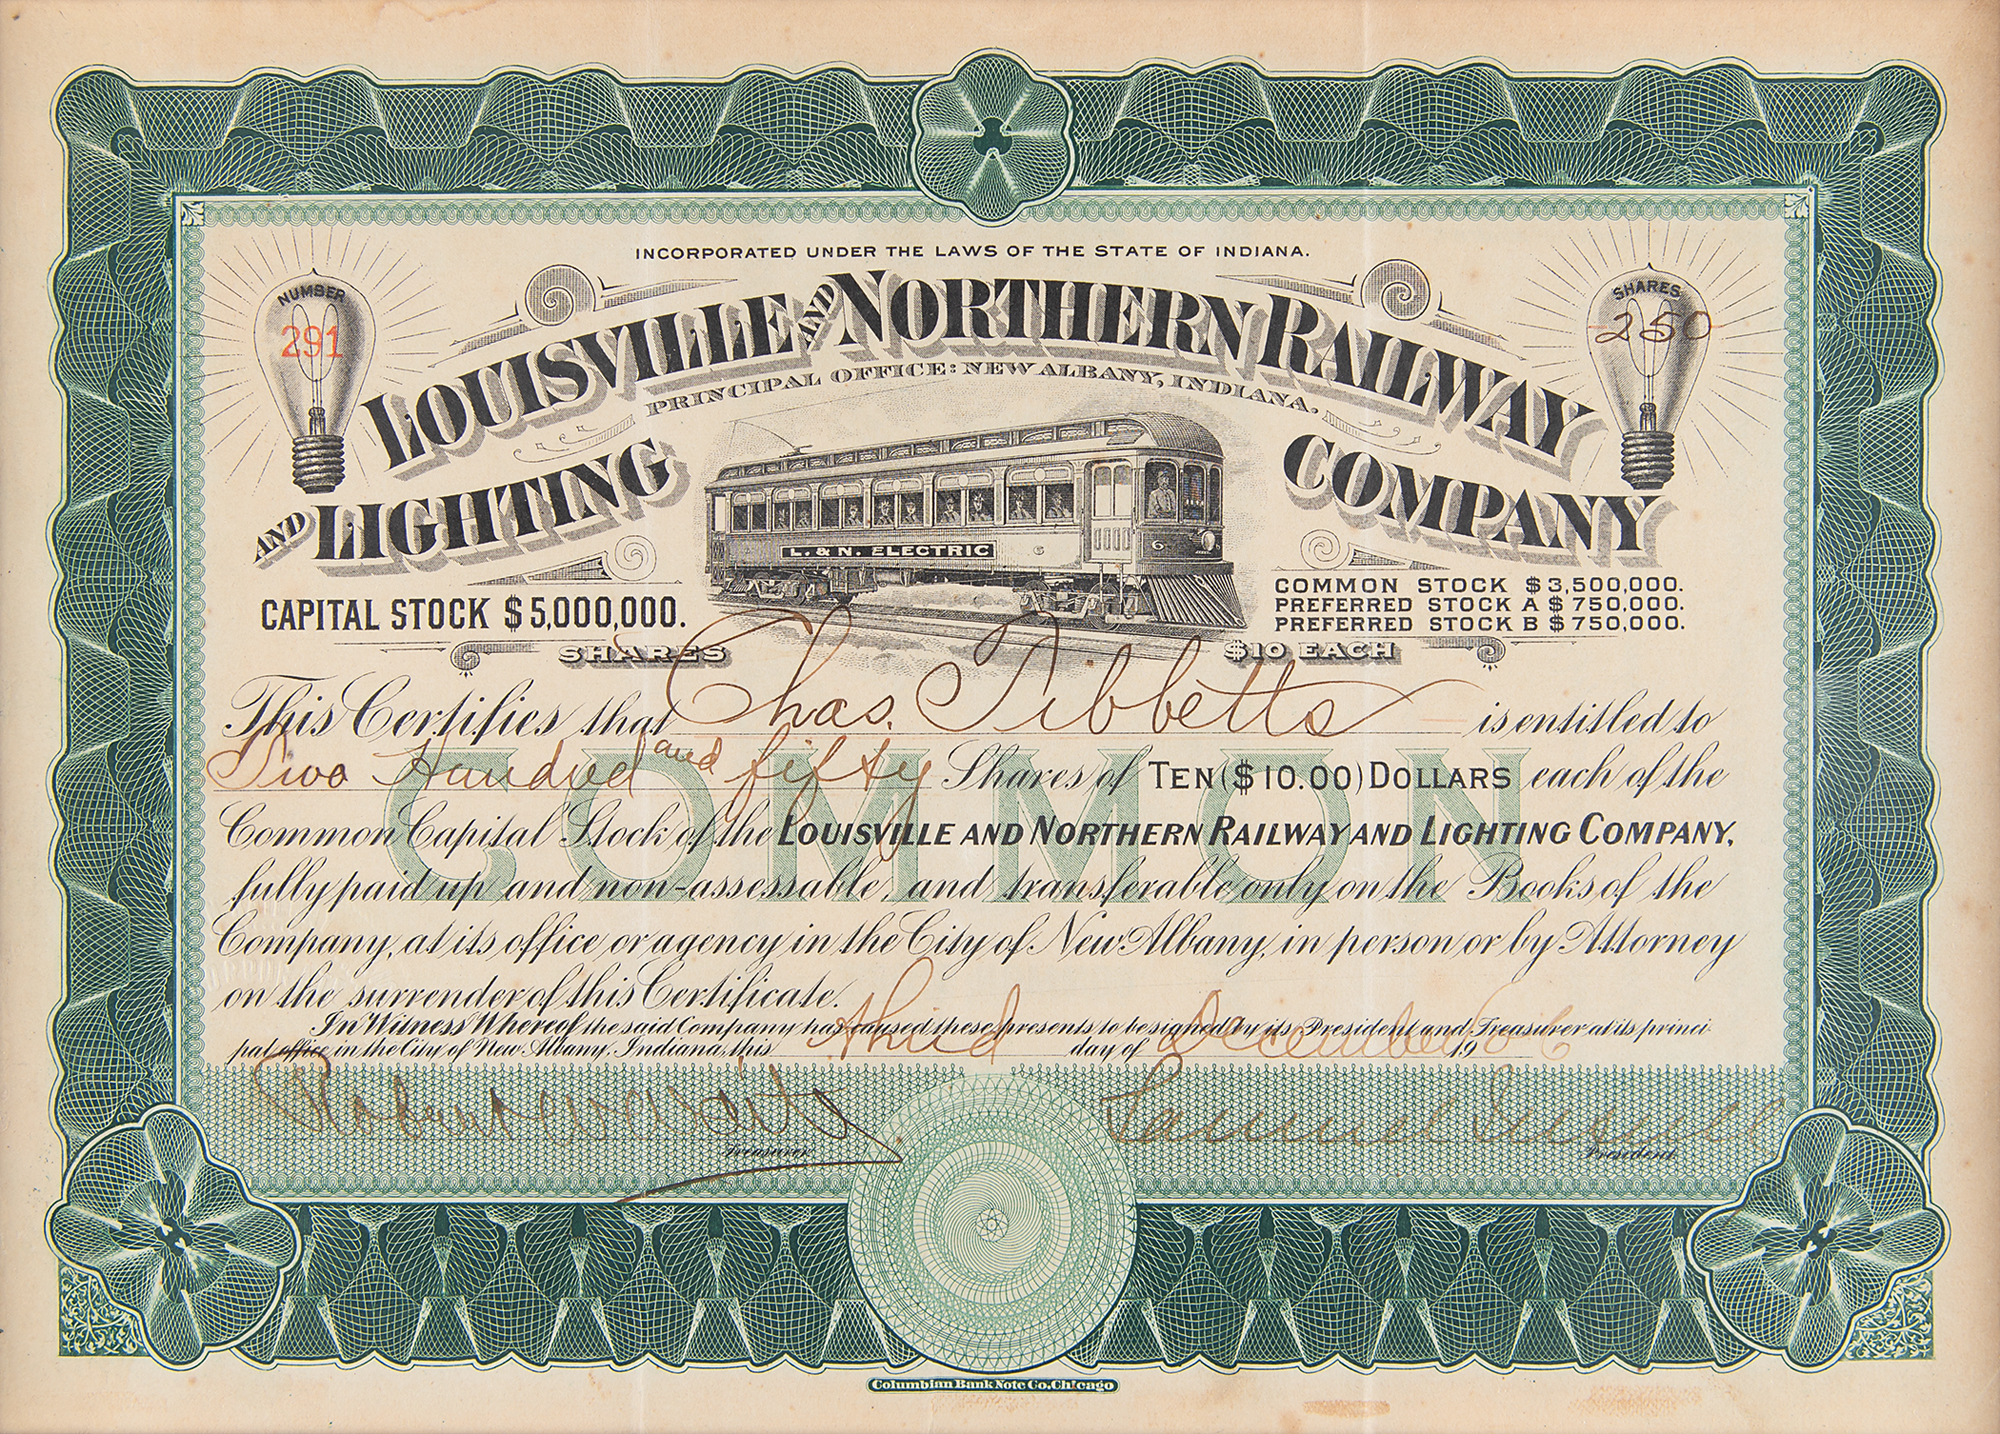 INCORPORATED UNDER THE LAWS OF THE STATE OF INDIANA.
NUMBER
291
SHARES
250
LOUISVILLE AND NORTHERN RAILWAY
PRINCIPAL OFFICE: NEW ALBANY, INDIANA.
AND LIGHTING COMPANY
L. & N. ELECTRIC
6
6
CAPITAL STOCK $5,000,000.
COMMON STOCK $3,500,000.
PREFERRED STOCK A $750,000.
PREFERRED STOCK B $750,000.
SHARES $10 EACH
COMMON
This Certifies that Chas. Tibbetts is entitled to
Two Hundred and fifty Shares of TEN ($10.00) DOLLARS each of the
Common Capital Stock of the LOUISVILLE AND NORTHERN RAILWAY AND LIGHTING COMPANY,
fully paid up and non-assessable, and transferable only on the Books of the
Company, at its office or agency in the City of New Albany, in person or by Attorney
on the surrender of this Certificate.
In Witness Whereof the said Company has caused these presents to be signed by its President and Treasurer at its princi-
pal office in the City of New Albany, Indiana, this third day of December 1906
Robert W Waite
Treasurer
Samuel Insull
President
Columbian Bank Note Co. Chicago